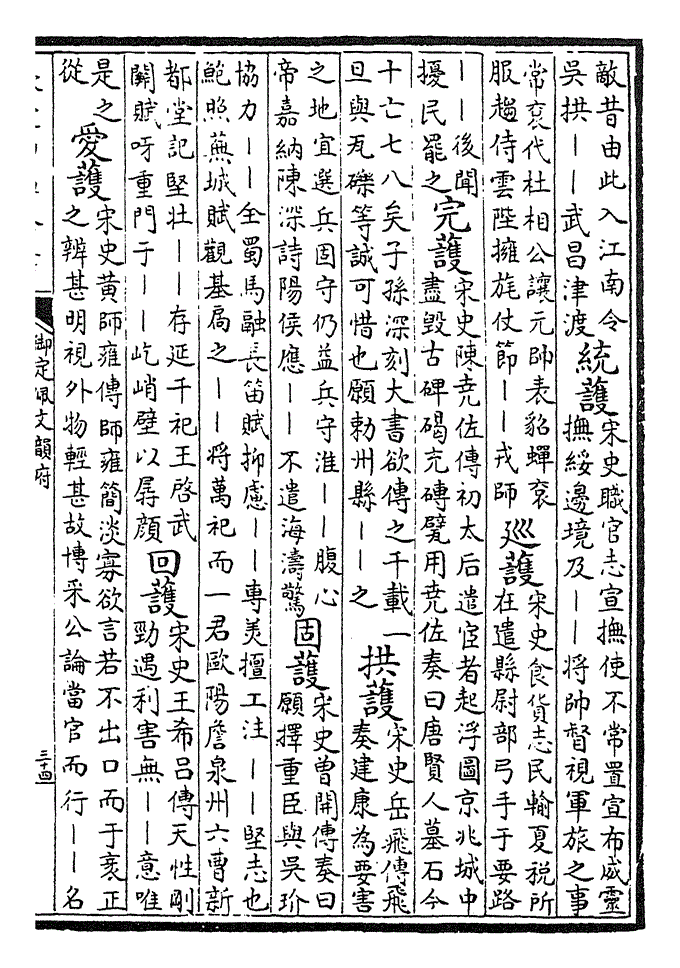 敵昔由此入江南令
吳拱——武昌津渡
統護
宋史職官志宣撫使不常置宣布威靈
撫綏邊境及——將帥督視軍旅之事
常衮代杜相公讓元帥表貂蟬衮
服趨侍雲陛擁旄仗節——戎師
巡護
宋史食貨志民輸夏税所
在遣縣尉部弓手于要路
——後聞
擾民罷之
完護
宋史陳堯佐傳初太后遣宦者起浮圖京兆城中
盡毀古碑碣充磚甓用堯佐奏曰唐賢人墓石今
十亡七八矣子孫深刻大書欲傳之千載一
旦與瓦礫等誠可惜也願勅州縣——之
拱護
宋史岳飛傳飛
奏建康為要害
之地宜選兵固守仍益兵守淮——腹心
帝嘉納陳深詩陽侯應——不遣海濤驚
固護
宋史曾開傳奏曰
願擇重臣與吳玠
協力——全蜀馬融長笛賦抑慮——專美擅工注——堅志也
鮑照蕪城賦觀基扃之——將萬祀而一君歐陽詹泉州六曹新
都堂記堅壯——存延千祀王啓武
關賦呀重門于——屹峭壁以孱顔
回護
宋史王希吕傳天性剛
勁遇利害無——意唯
是之
從
愛護
宋史黄師雍傳師雍簡淡寡欲言若不出口而于衺正
之辨甚明視外物輕甚故博采公論當官而行——名
御定佩文韻府
三十四